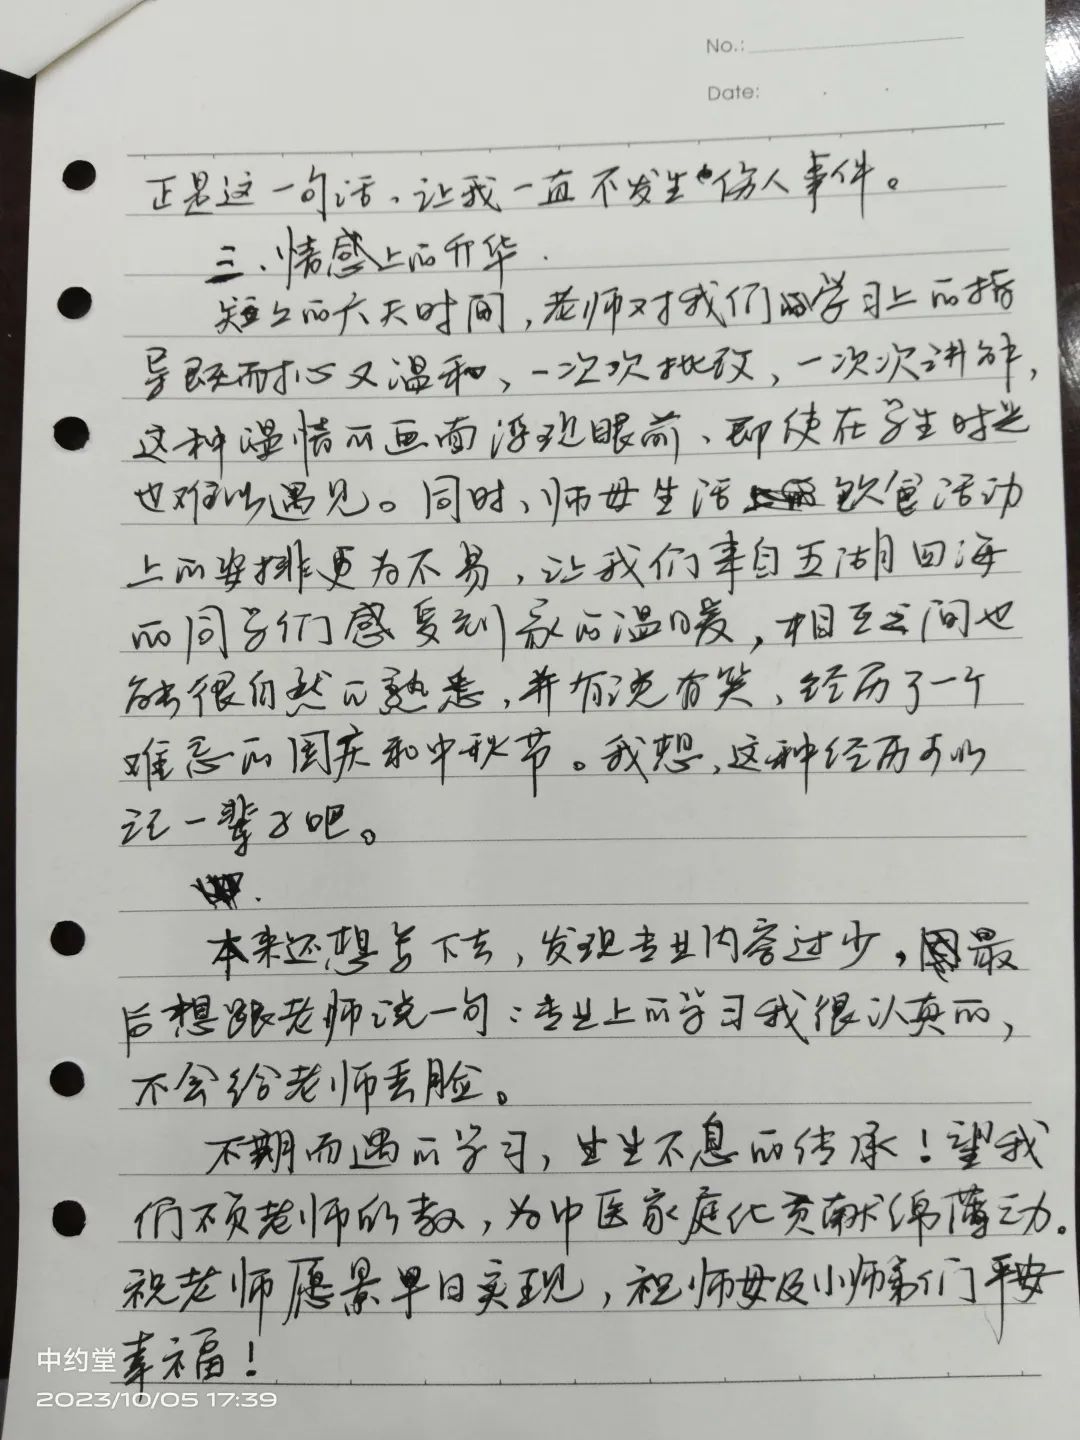 No.:
Date:
正是这一句话、让我一直不发生伤人事件。
三、情感上的升华.
短短的六天时间，老师对我们的学习上的指
导既耐心又温和，一次次批改，一次次讲解，
这种温情的画面浮现眼前、即使在学生时光
也难以遇见。同时、师母生活 饮食活动
上的安排更为不易，让我们来自五湖四海
的同学们感受到家的温暖，相互之间也
能很自然的熟悉，并有说有笑、经历了一个
难忘的国庆和中秋节。我想，这种经历可以
记一辈子吧。
本来还想写下去，发现专业内容过少，最
后想跟老师说一句：专业上的学习我很认真的，
不会给老师丢脸。
不期而遇的学习，生生不息的传承！望我
们不负老师的教，为中医家庭化贡献绵薄之力。
祝老师愿景早日实现，祝师母及小师弟们平安
幸福！
中约堂
2023/10/05 17:39